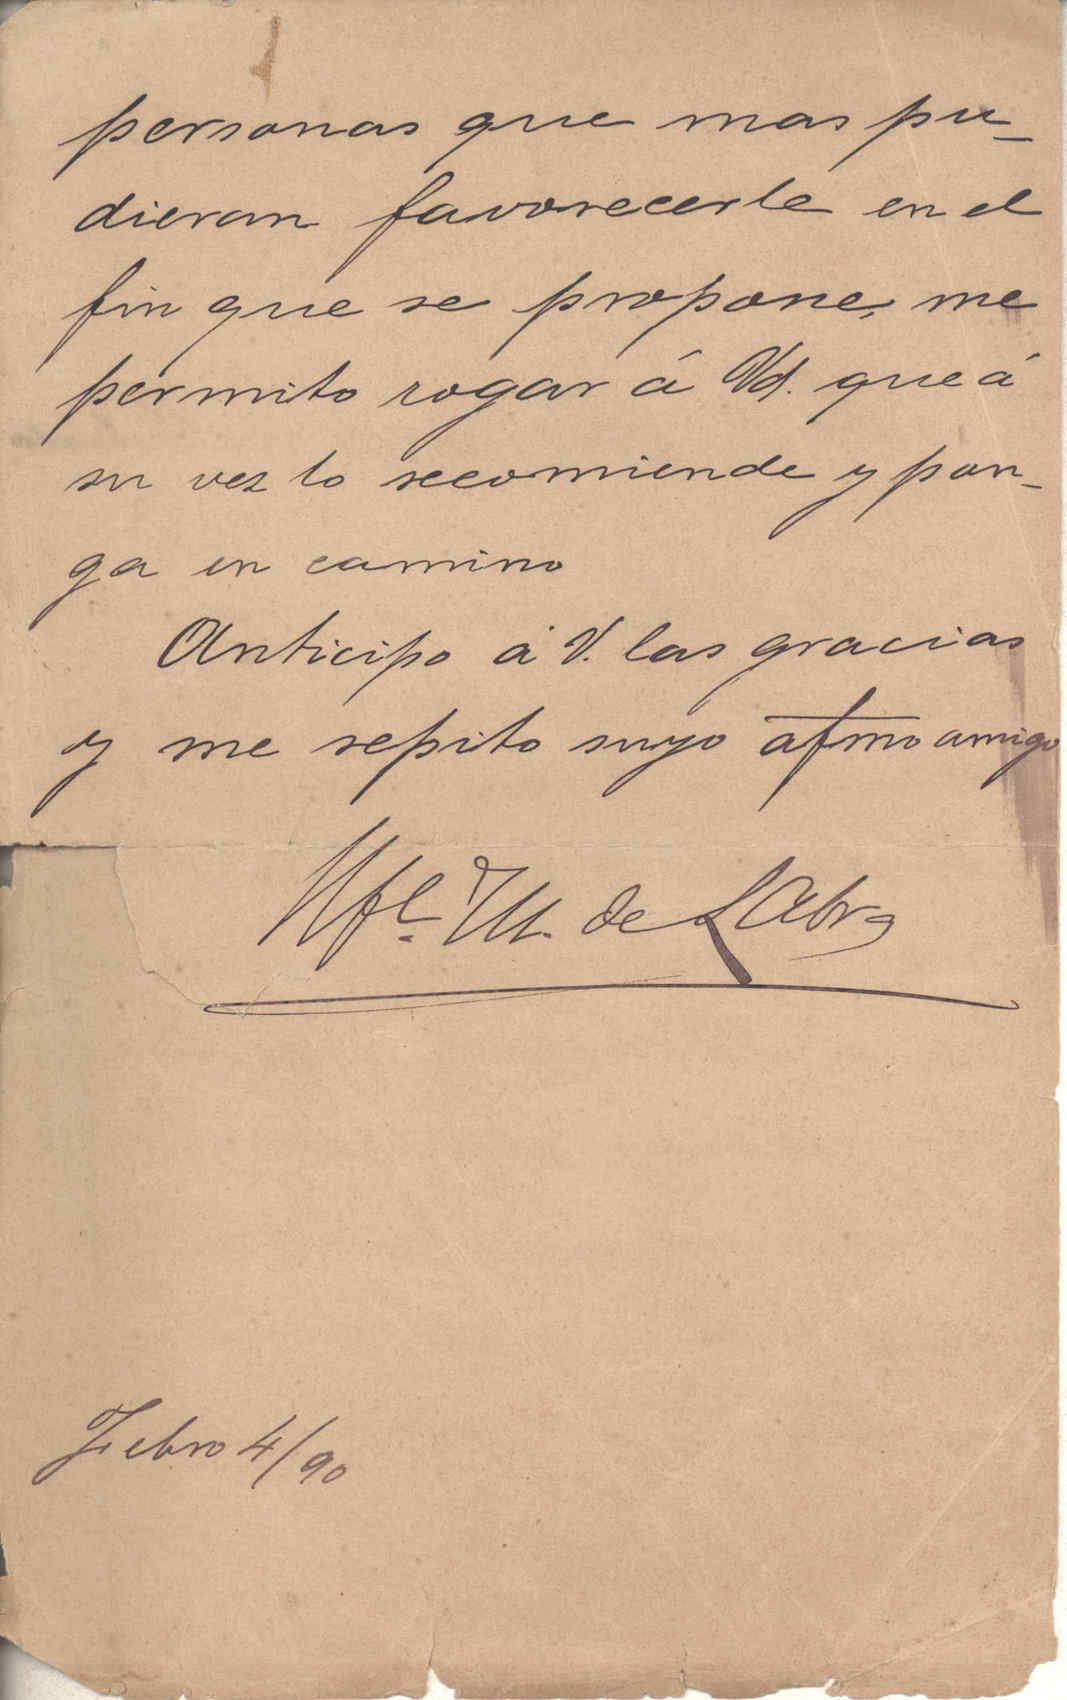 personas que mas pu-
dieran favorecerle en el
fin que se propone, me
permito rogar á Vd. que á
su vez lo recomiende y pon-
ga en camino
Anticipo á V. las gracias
y me repito suyo afmo amigo
Rfl. M. de Labra
Febro 4/90